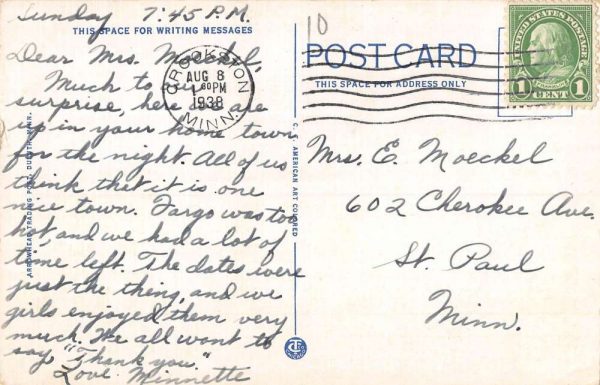 Sunday 7:45 P.M.
THIS SPACE FOR WRITING MESSAGES
Dear Mrs. Moeckel,
Much to our
surprise, here we are
up in your home town
for the night. All of us
think that it is one
nice town. Fargo was too
hot, and we had a lot of
time left. The dates were
just the thing, and we
girls enjoyed them very
much. We all want to
say, "Thank you."
Love Minnette
ARROWHEAD TRADING POST, DULUTH, MINN.
C. T. AMERICAN ART COLORED
10
CROOKSTON
AUG 8
1 PM
1938
MINN.
POST CARD
THIS SPACE FOR ADDRESS ONLY
UNITED STATES POSTAGE
FRANKLIN
1 CENT 1
Mrs. E. Moeckel
602 Cherokee Ave.
St. Paul
Minn.